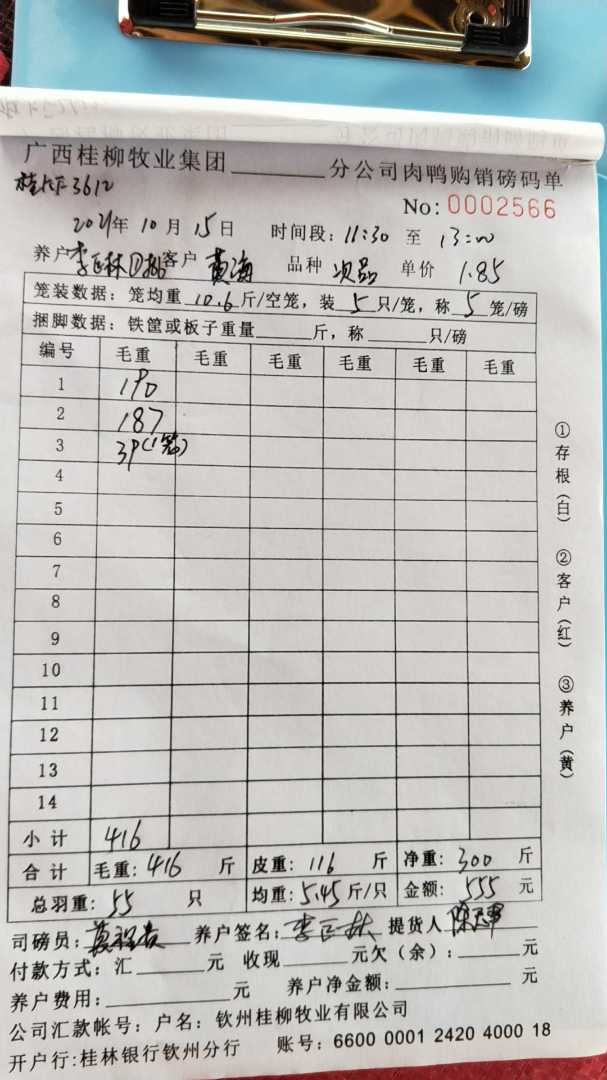 广西桂柳牧业集团______分公司肉鸭购销磅码单
3612 No: 0002566
2021年 10月 15日 时间段: 11:30 至 13:00
养户 李正林 客户 黄海 品种 次品 单价 1.85
笼装数据: 笼均重 10.6 斤/空笼, 装 5 只/笼, 称 5 笼/磅
捆脚数据: 铁筐或板子重量______斤, 称______只/磅
编号 毛重 毛重 毛重 毛重 毛重 毛重
1 190
2 187
3 39(1笼)
4
5
6
7
8
9
10
11
12
13
14
小计 416
合计 毛重: 416 斤 皮重: 116 斤 净重: 300 斤
总羽重: 55 只 均重: 5.45 斤/只 金额: 555 元
司磅员: 养户签名: 李正林 提货人
付款方式: 汇______元 收现______元欠(余):______元
养户费用:______元 养户净金额:______元
公司汇款帐号: 户名: 钦州桂柳牧业有限公司
开户行: 桂林银行钦州分行 账号: 6600 0001 2420 4000 18
①存根(白) ②客户(红) ③养户(黄)